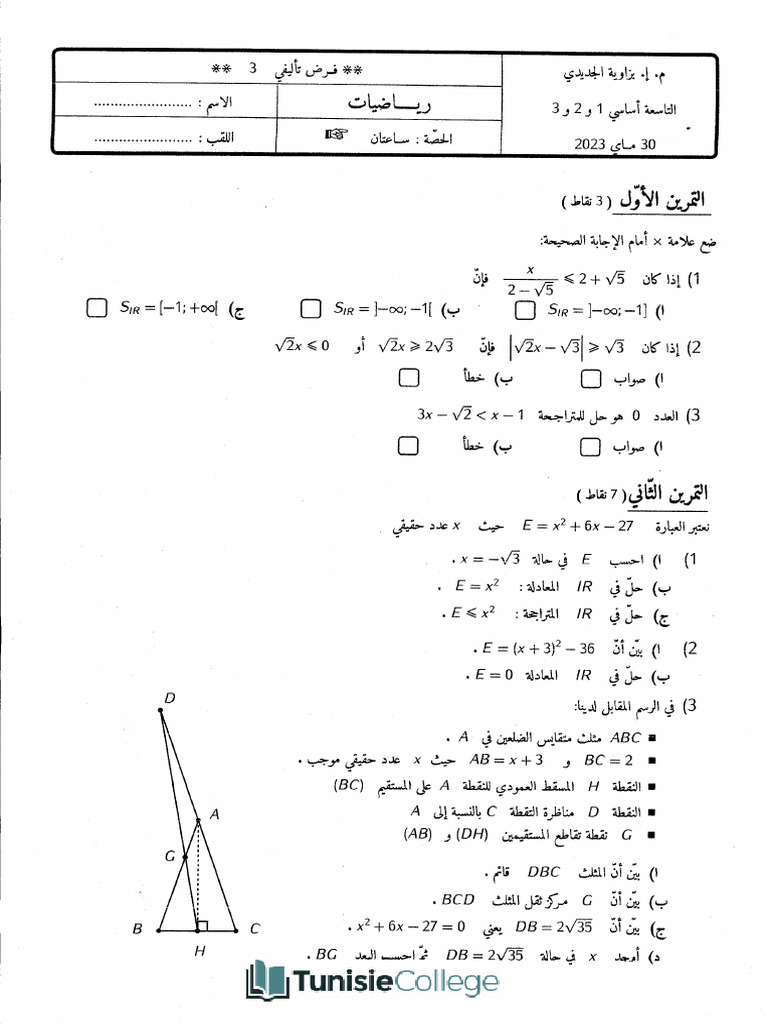 م. إ. بزاوية الجديدي
التاسعة أساسي 1 و 2 و 3
30 ماي 2023
** فرض تأليفي 3 **
رياضيات
الحصّة : ساعتان
الاسم : ........................
اللقب : ........................
التمرين الأوّل ( 3 نقاط )
ضع علامة × أمام الإجابة الصحيحة:
1) إذا كان x/(2 − √5) ⩽ 2 + √5 فإنّ
ا) S_IR = ]−∞; −1] ب) S_IR = ]−∞; −1[ ج) S_IR = [−1; +∞[
2) إذا كان |√2x − √3| ⩾ √3 فإنّ √2x ⩾ 2√3 أو √2x ⩽ 0
ا) صواب ب) خطأ
3) العدد 0 هو حل للمتراجحة 3x − √2 < x − 1
ا) صواب ب) خطأ
التمرين الثّاني ( 7 نقاط )
نعتبر العبارة E = x² + 6x − 27 حيث x عدد حقيقي
1) ا) احسب E في حالة x = −√3 .
ب) حلّ في IR المعادلة : E = x² .
ج) حلّ في IR المتراجحة : E ⩽ x² .
2) ا) بيّن أنّ E = (x + 3)² − 36 .
ب) حلّ في IR المعادلة E = 0 .
3) في الرسم المقابل لدينا:
▪ ABC مثلث متقايس الضلعين في A .
▪ BC = 2 و AB = x + 3 حيث x عدد حقيقي موجب .
▪ النقطة H المسقط العمودي للنقطة A على المستقيم (BC)
▪ النقطة D مناظرة النقطة C بالنسبة إلى A
▪ G نقطة تقاطع المستقيمين (DH) و (AB)
ا) بيّن أنّ المثلث DBC قائم .
ب) بيّن أنّ G مركز ثقل المثلث BCD .
ج) بيّن أنّ DB = 2√35 يعني x² + 6x − 27 = 0 .
د) أوجد x في حالة DB = 2√35 ثمّ احسب البعد BG .
D
A
G
B
C
H
TunisieCollege